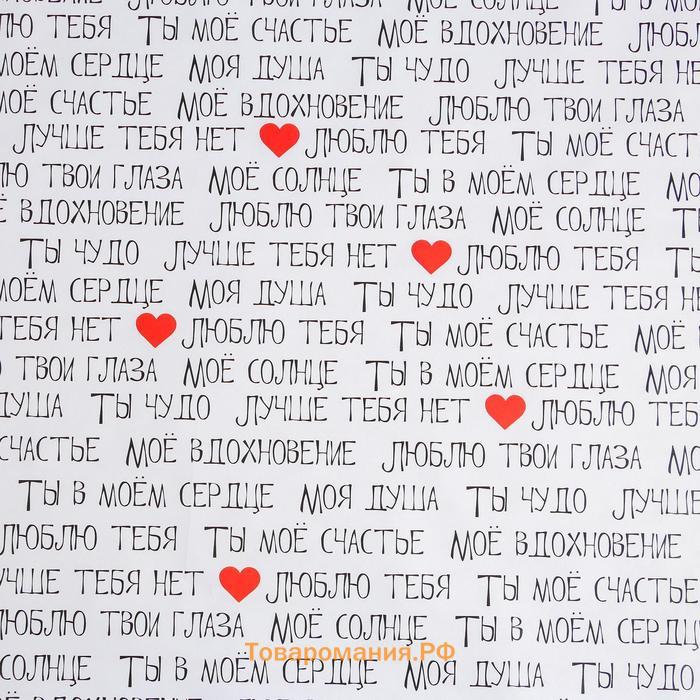 ЛЮБЛЮ ТВОИ ГЛАЗА МОЁ СОЛНЦЕ ТЫ В МОЁМ
ТЕБЯ ТЫ МОЁ СЧАСТЬЕ МОЁ ВДОХНОВЕНИЕ
МОЁМ СЕРДЦЕ МОЯ ДУША ТЫ ЧУДО ЛУЧШЕ ТЕБЯ НЕ
МОЁ СЧАСТЬЕ МОЁ ВДОХНОВЕНИЕ ЛЮБЛЮ ТВОИ ГЛАЗА
ЛУЧШЕ ТЕБЯ НЕТ ЛЮБЛЮ ТЕБЯ ТЫ МОЁ СЧАСТ
Ю ТВОИ ГЛАЗА МОЁ СОЛНЦЕ ТЫ В МОЁМ СЕРДЦЕ МО
Ё ВДОХНОВЕНИЕ ЛЮБЛЮ ТВОИ ГЛАЗА МОЁ СОЛНЦЕ Т
ТЫ ЧУДО ЛУЧШЕ ТЕБЯ НЕТ ЛЮБЛЮ ТЕБЯ ТЫ
МОЁМ СЕРДЦЕ МОЯ ДУША ТЫ ЧУДО ЛУЧШЕ ТЕБЯ
ТЕБЯ НЕТ ЛЮБЛЮ ТЕБЯ ТЫ МОЁ СЧАСТЬЕ МОЁ
ТВОИ ГЛАЗА МОЁ СОЛНЦЕ ТЫ В МОЁМ СЕРДЦЕ МОЯ
ДУША ТЫ ЧУДО ЛУЧШЕ ТЕБЯ НЕТ ЛЮБЛЮ ТЕБ
СЧАСТЬЕ МОЁ ВДОХНОВЕНИЕ ЛЮБЛЮ ТВОИ ГЛАЗА МО
ТЫ В МОЁМ СЕРДЦЕ МОЯ ДУША ТЫ ЧУДО ЛУЧШЕ
ЛЮБЛЮ ТЕБЯ ТЫ МОЁ СЧАСТЬЕ МОЁ ВДОХНОВЕНИЕ
УЧШЕ ТЕБЯ НЕТ ЛЮБЛЮ ТЕБЯ ТЫ МОЁ СЧАСТЬЕ
ЛЮБЛЮ ТВОИ ГЛАЗА МОЁ СОЛНЦЕ ТЫ В МОЁМ СЕРДЦ
Товаромания.РФ
СОЛНЦЕ ТЫ В МОЁМ СЕРДЦЕ МОЯ ДУША ТЫ ЧУДО